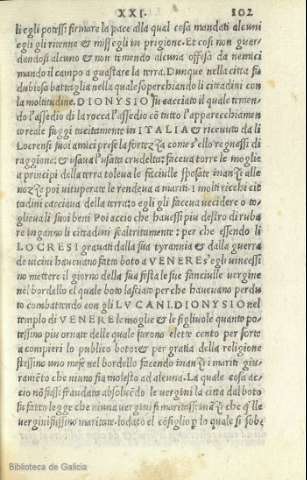 XXI. 102
li egli potessi firmare la pace alla qual cosa mandati alcuni
egli gli ritenne & missegli in prigione. Et cosi non guar
dandosi alcuno & non timendo alcuna offesa da nemici
mando il campo a guastare la terra. Dunque nella citta fu
dubiosa battaglia nella quale soperchiando li cittadini con
la moltitudine. DIONYSIO fu cacciato il quale timen
do l'assedio di la rocca l'assedio cō tutto l'apparecchiamen
to reale fuggi tacitamente in ITALIA & ricevuto da li
Locrensi suoi amici prese la fortezza come s'ello regnassi di
raggione: & usava l'usata crudelta: faceva torre le moglie
a principi della terra toleva le faciulle sposate inanze alle
nozze poi vituperate le rendeva a mariti: i molti ricchi cit
tadini cacciava della terra: o egli gli faceva uccidere o to
glieva li suoi beni Poi accio che havessi piu desiro di ruba
re inganno li cittadini scaltritamente: per che essendo li
LOCRESI gravati dalla sua tyrannia & dalla guerra
de vicini havevano fatto boto a VENERE s'egli vincessi
no mettere il giorno della sua festa le sue fanciulle vergine
nel bordello el quale boto lasciato per che havevano perdu
to combattendo con gli LVCANI. DIONYSIO nel
templo di VENERE le moglie & le figliuole quanto po
tessino piu ornate delle quale furono elette cento per sorte
a compiere lo publico boto: & per gratia della religione
stessino uno mese nel bordello facendo inanze i mariti giu
ramēto che niuno sia molesto ad alcuna. La quale cosa ac
cio nō fussi fraudato absolvēdo le vergini la citta dal boto
fu fatto legge che niuna vergini si maritasse inanze che q̃lle
verginissino maritate: lodato el cōsiglio p lo quale si sobe
Biblioteca de Galicia